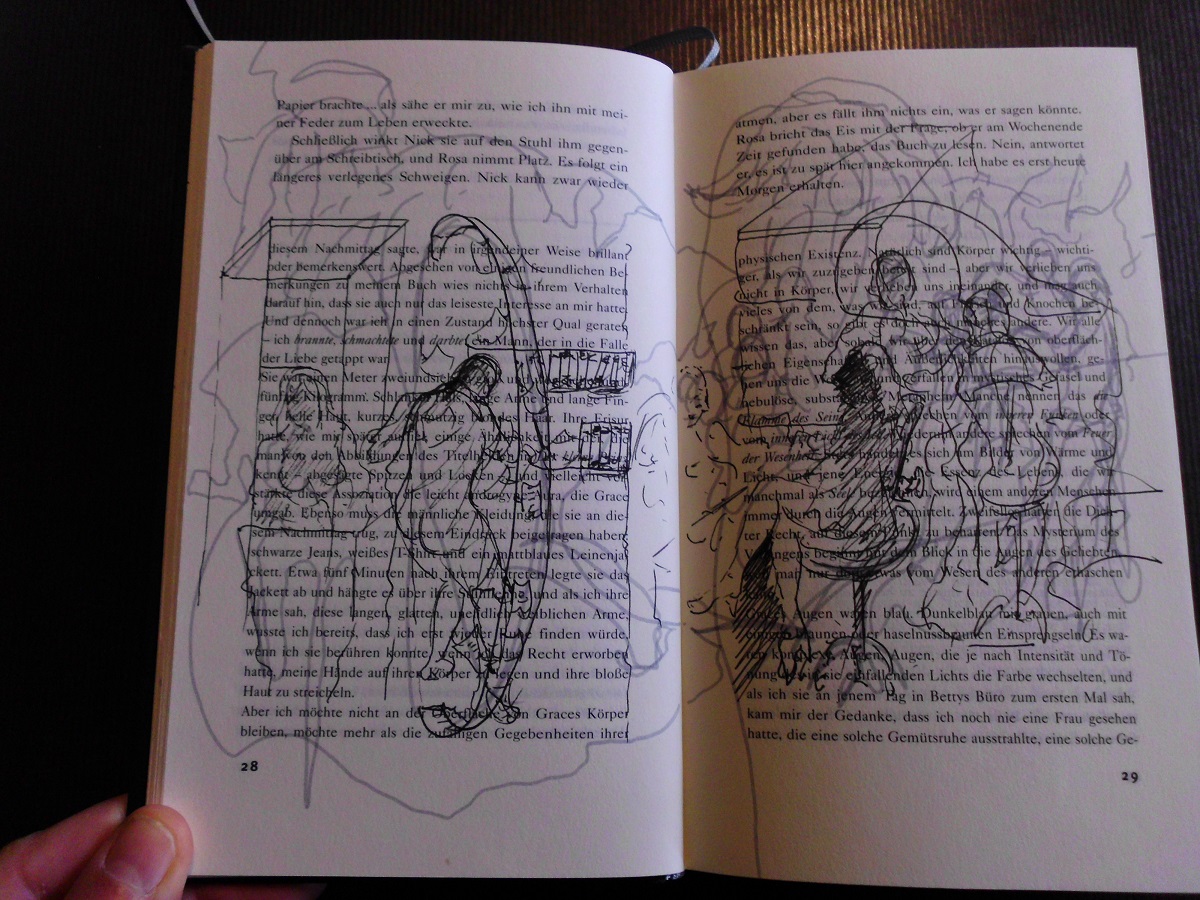 Papier brachte ... als sähe er mir zu, wie ich ihn mit mei-
ner Feder zum Leben erweckte.
Schließlich winkt Nick sie auf den Stuhl ihm gegen-
über am Schreibtisch, und Rosa nimmt Platz. Es folgt ein
längeres verlegenes Schweigen. Nick kann zwar wieder
diesem Nachmittag sagte, war in irgendeiner Weise brillant
oder bemerkenswert. Abgesehen von einigen freundlichen Be-
merkungen zu meinem Buch wies nichts in ihrem Verhalten
darauf hin, dass sie auch nur das leiseste Interesse an mir hatte.
Und dennoch war ich in einen Zustand höchster Qual geraten
– ich brannte, schmachtete und darbte, ein Mann, der in die Falle
der Liebe getappt war.
Sie war einen Meter zweiundsiebzig und
fünfzig Kilogramm. Schlanker Hals, lange Arme und lange Fin-
ger, helle Haut, kurzes, schmutzig blondes Haar. Ihre Frisur
hatte, wie mir später auffiel, einige Ähnlichkeit mit der, die
man von den Abbildungen des Titelhelden in
kennt – abgesägte Spitzen und Locken – und vielleicht ver-
stärkte diese Assoziation die leicht androgyne Aura, die Grace
umgab. Ebenso muss die männliche Kleidung, die sie an die-
sem Nachmittag trug, zu diesem Eindruck beigetragen haben:
schwarze Jeans, weißes T-Shirt und ein mattblaues Leinenja-
ckett. Etwa fünf Minuten nach ihrem Eintreten legte sie das
Jackett ab und hängte es über ihre Stuhllehne, und als ich ihre
Arme sah, diese langen, glatten, unendlich weiblichen Arme,
wusste ich bereits, dass ich erst wieder Ruhe finden würde,
wenn ich sie berühren konnte, wenn ich das Recht erworben
hatte, meine Hände auf ihren Körper zu legen und ihre bloße
Haut zu streicheln.
Aber ich möchte nicht an der Oberfläche von Graces Körper
bleiben, möchte mehr als die zufälligen Gegebenheiten ihrer
28
atmen, aber es fällt ihm nichts ein, was er sagen könnte.
Rosa bricht das Eis mit der Frage, ob er am Wochenende
Zeit gefunden habe, das Buch zu lesen. Nein, antwortet
er, es ist zu spät hier angekommen. Ich habe es erst heute
Morgen erhalten.
physischen Existenz. Natürlich sind Körper wichtig – wichti-
ger, als wir zuzugeben bereit sind – aber wir verlieben uns
nicht in Körper, wir verlieben uns ineinander, und mag auch
vieles von dem, was wir sind, auf Fleisch und Knochen be-
schränkt sein, so gibt es doch auch manches andere. Wir alle
wissen das, aber sobald wir über den Katalog von oberfläch-
lichen Eigenschaften und Äußerlichkeiten hinauswollen, ge-
hen uns die Worte und verfallen in mystisches Gefasel und
nebulöse, substanzlose Metaphern. Manche nennen das die
Flamme des Seins. Andere sprechen vom inneren Funken oder
vom inneren Licht Wiederum andere sprechen vom Feuer
der Wesenheit. Stets handelt es sich um Bilder von Wärme und
Licht, und jene Energie, die Essenz des Lebens, die wir
manchmal als Seele bezeichnen, wird einem anderen Menschen
immer durch die Augen vermittelt. Zweifellos hatten die Dich-
ter Recht, auf diesem Punkt zu beharren. Das Mysterium des
Verlangens beginnt mit dem Blick in die Augen des Geliebten,
man nur dort etwas vom Wesen des anderen erhaschen
Augen waren blau. Dunkelblau mit grauen, auch mit
einigen braunen oder haselnussbraunen Einsprengseln. Es wa-
ren komplexe Augen, Augen, die je nach Intensität und Tö-
nung des in sie einfallenden Lichts die Farbe wechselten, und
als ich sie an jenem Tag in Bettys Büro zum ersten Mal sah,
kam mir der Gedanke, dass ich noch nie eine Frau gesehen
hatte, die eine solche Gemütsruhe ausstrahlte, eine solche Ge-
29